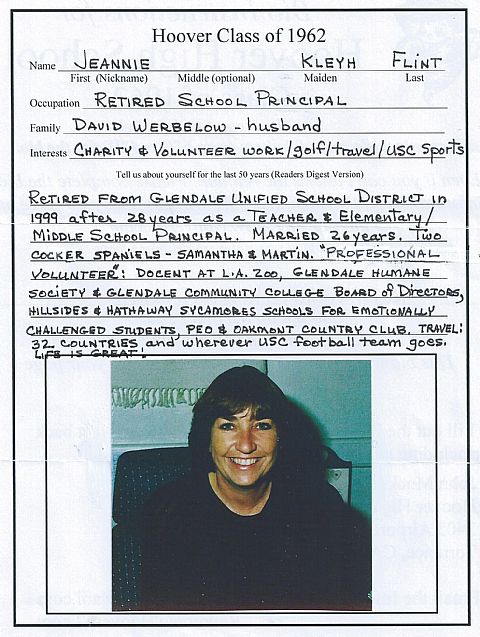 Hoover Class of 1962
Name JEANNIE KLEYH FLINT
First (Nickname) Middle (optional) Maiden Last
Occupation RETIRED SCHOOL PRINCIPAL
Family DAVID WERBELOW - husband
Interests CHARITY & VOLUNTEER WORK/golf/travel/USC Sports
Tell us about yourself for the last 50 years (Readers Digest Version)
RETIRED FROM GLENDALE UNIFIED SCHOOL DISTRICT in
1999 after 28 years as a TEACHER & Elementary/
MIDDLE SCHOOL PRINCIPAL. MARRIED 26 years. Two
COCKER SPANIELS - SAMANTHA & MARTIN. "PROFESSIONAL
VOLUNTEER": DOCENT AT L.A. ZOO, GLENDALE HUMANE
SOCIETY & GLENDALE COMMUNITY COLLEGE BOARD of DIRECTORS,
HILLSIDES & HATHAWAY SYCAMORES SCHOOLS FOR EMOTIONALLY
CHALLENGED STUDENTS, PEO & OAKMONT COUNTRY CLUB. TRAVEL:
32 COUNTRIES and wherever USC football team goes.
LIFE IS GREAT!